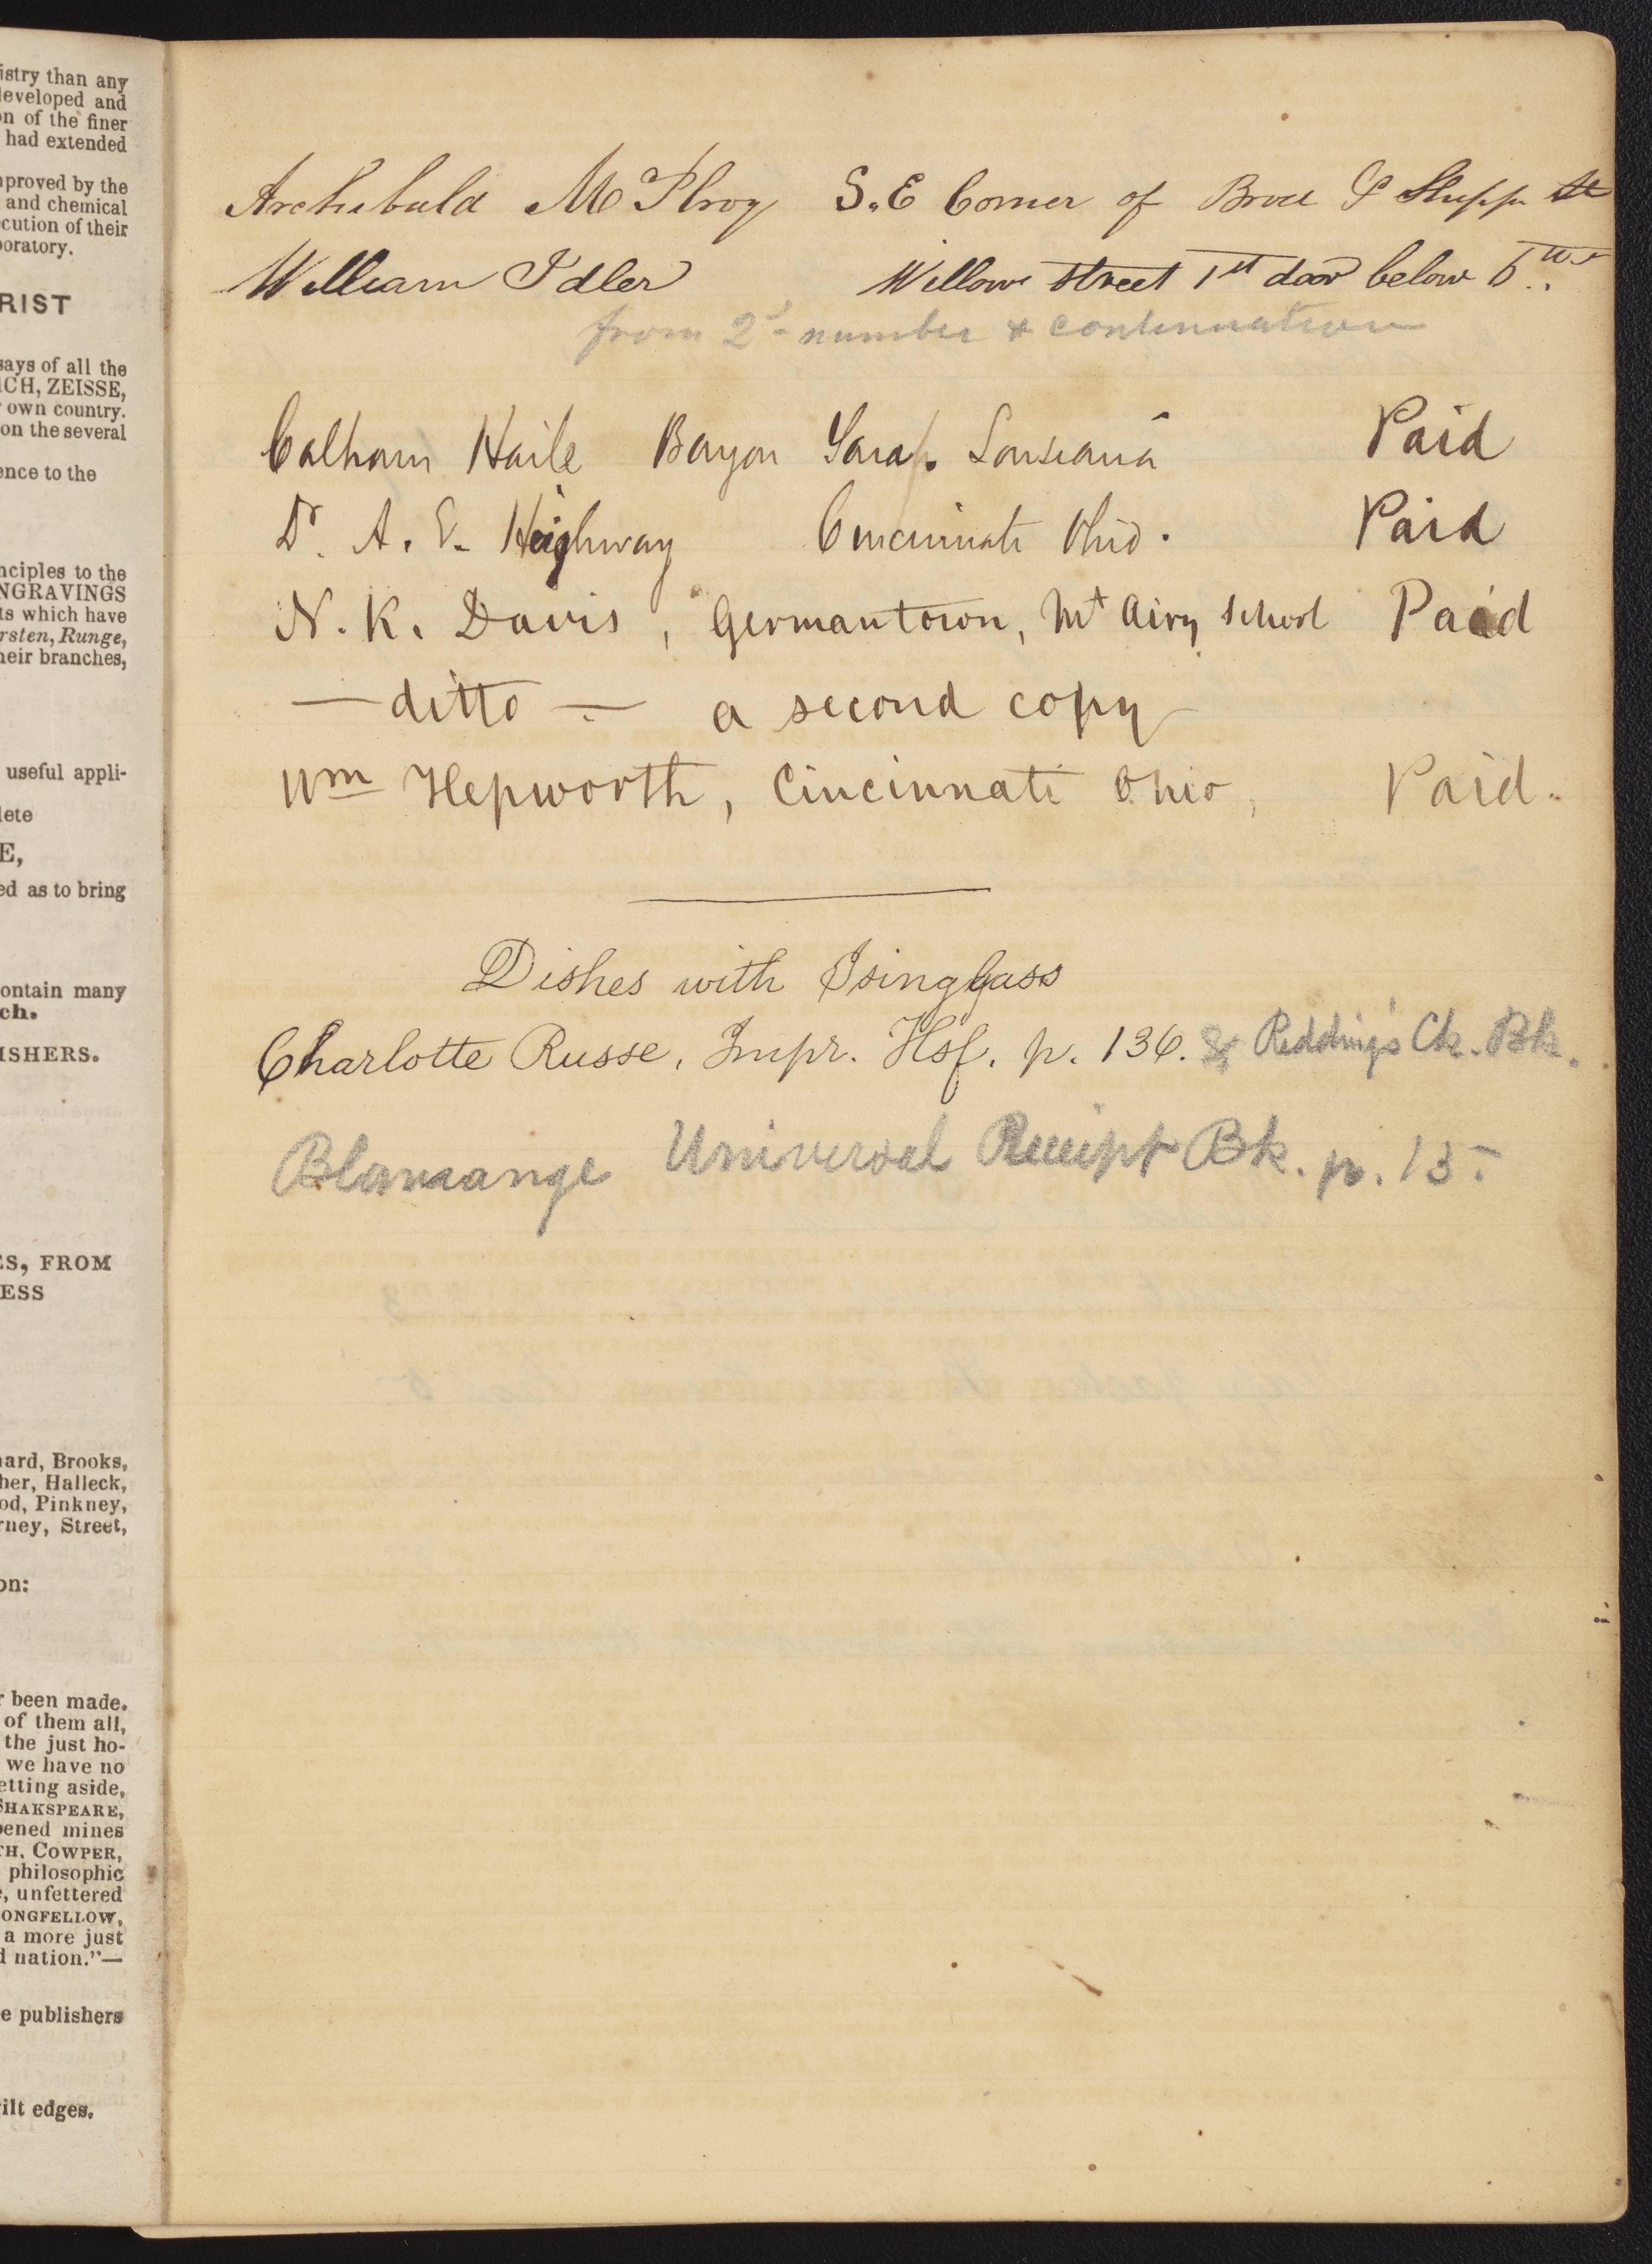 istry than any
developed and
on of the finer
had extended
nproved by the
and chemical
cution of their
boratory.
RIST
says of all the
ICH, ZEISSE,
own country.
on the several
ence to the
nciples to the
NGRAVINGS
ts which have
rsten, Runge,
heir branches,
useful appli-
lete
E,
ed as to bring
ontain many
ch.
ISHERS.
ES, FROM
ESS
ard, Brooks,
her, Halleck,
od, Pinkney,
rney, Street,
on:
r been made.
of them all,
the just ho-
we have no
etting aside,
SHAKSPEARE,
pened mines
TH, COWPER,
philosophic
e, unfettered
ONGFELLOW,
a more just
d nation."—
e publishers
ilt edges.
Archibald McIlroy S.E Corner of Broad & Shippn St
William Idler Willow street 1st door below 6th
from 2d number & continuation
Calhoun Haile Bayou Sarah. Louisiana Paid
Dr. A. E. Heighway Cincinnati Ohio. Paid
N. K. Davis, Germantown, Mt Airy School Paid
— ditto — a second copy
Wm Hepworth, Cincinnati Ohio, Paid.
Dishes with Isinglass
Charlotte Russe, Impr. Hsf. p. 136. & Redding's Ck. Bk.
Blamange Universal Receipt Bk. p. 15.